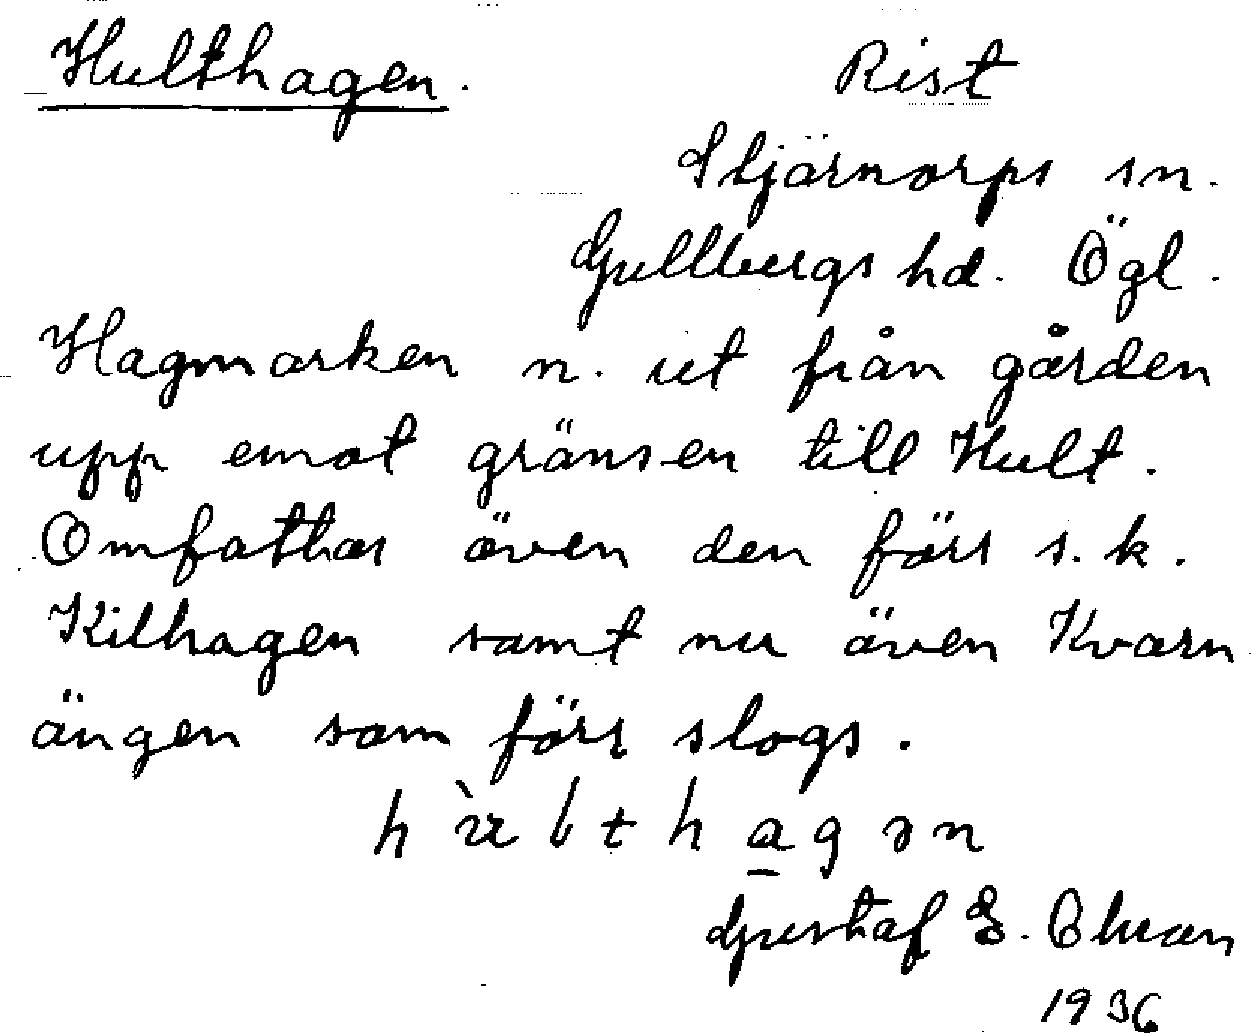 Hulthagen. Rist
Stjärnorps sn.
Gullbergs hd. Ögl.
Hagmarken n. ut från gården
upp emot gränsen till Hult.
Omfattar även den förr s.k.
Kilhagen samt nu även Kvarn
ängen som förr slogs.
Gustaf E.
1936